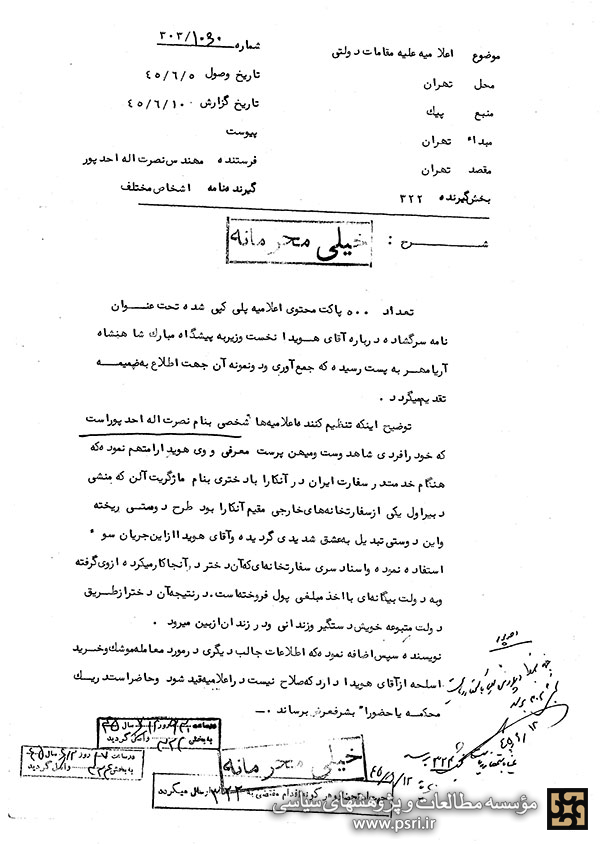 موضوع اعلامیه علیه مقامات دولتی
شماره ۳۰۳/۱۰۶۰
محل تهران
تاریخ وصول ۴۵/۶/۵
منبع پیك
تاریخ گزارش ۴۵/۶/۱۰
مبداء تهران
پیوست
مقصد تهران
فرستنده مهندس نصرت اله احدپور
بخش گیرنده ۳۲۲
گیرنده نامه اشخاص مختلف
شرح :
خیلی محرمانه
تعداد ۵۰۰ پاکت محتوی اعلامیه پلی کپی شده تحت عنوان
نامه سرگشاده درباره آقای هویدا نخست وزیر به پیشگاه مبارك شاهنشاه
آریامهر به پست رسیده که جمع آوری و دونمونه آن جهت اطلاع به ضمیمه
تقدیم میگردد.
توضیح اینکه تنظیم کننده اعلامیه ها شخصی بنام نصرت اله احدپور است
که خود را فردی شاهدوست و میهن پرست معرفی و وی هویدا را متهم نموده که
هنگام خدمت در سفارت ایران در آنکارا با دختری بنام مارگریت آلن که منشی
دبیر اول یکی از سفارتخانه های خارجی مقیم آنکارا بود طرح دوستی ریخته
و این دوستی تبدیل به عشق شدیدی گردیده و آقای هویدا از این جریان سوء
استفاده نموده و اسناد سری سفارتخانه ای که آن دختر در آنجا کار میکرده از وی گرفته
و به دولت بیگانه ای با اخذ مبلغی پول فروخته است. در نتیجه آن دختر از طریق
دولت متبوعه خویش دستگیر و زندانی و در زندان از بین میرود.
نویسنده سپس اضافه نموده که اطلاعات جالب دیگری در مورد معامله موشك و خرید
اسلحه از آقای هویدا دارد که صلاح نیست در اعلامیه قید شود و حاضر است در یك
محکمه یا حضورا" بشرفعرض برساند.
خیلی محرمانه
مؤسسه مطالعات و پژوهشهای سیاسی
www.psri.ir